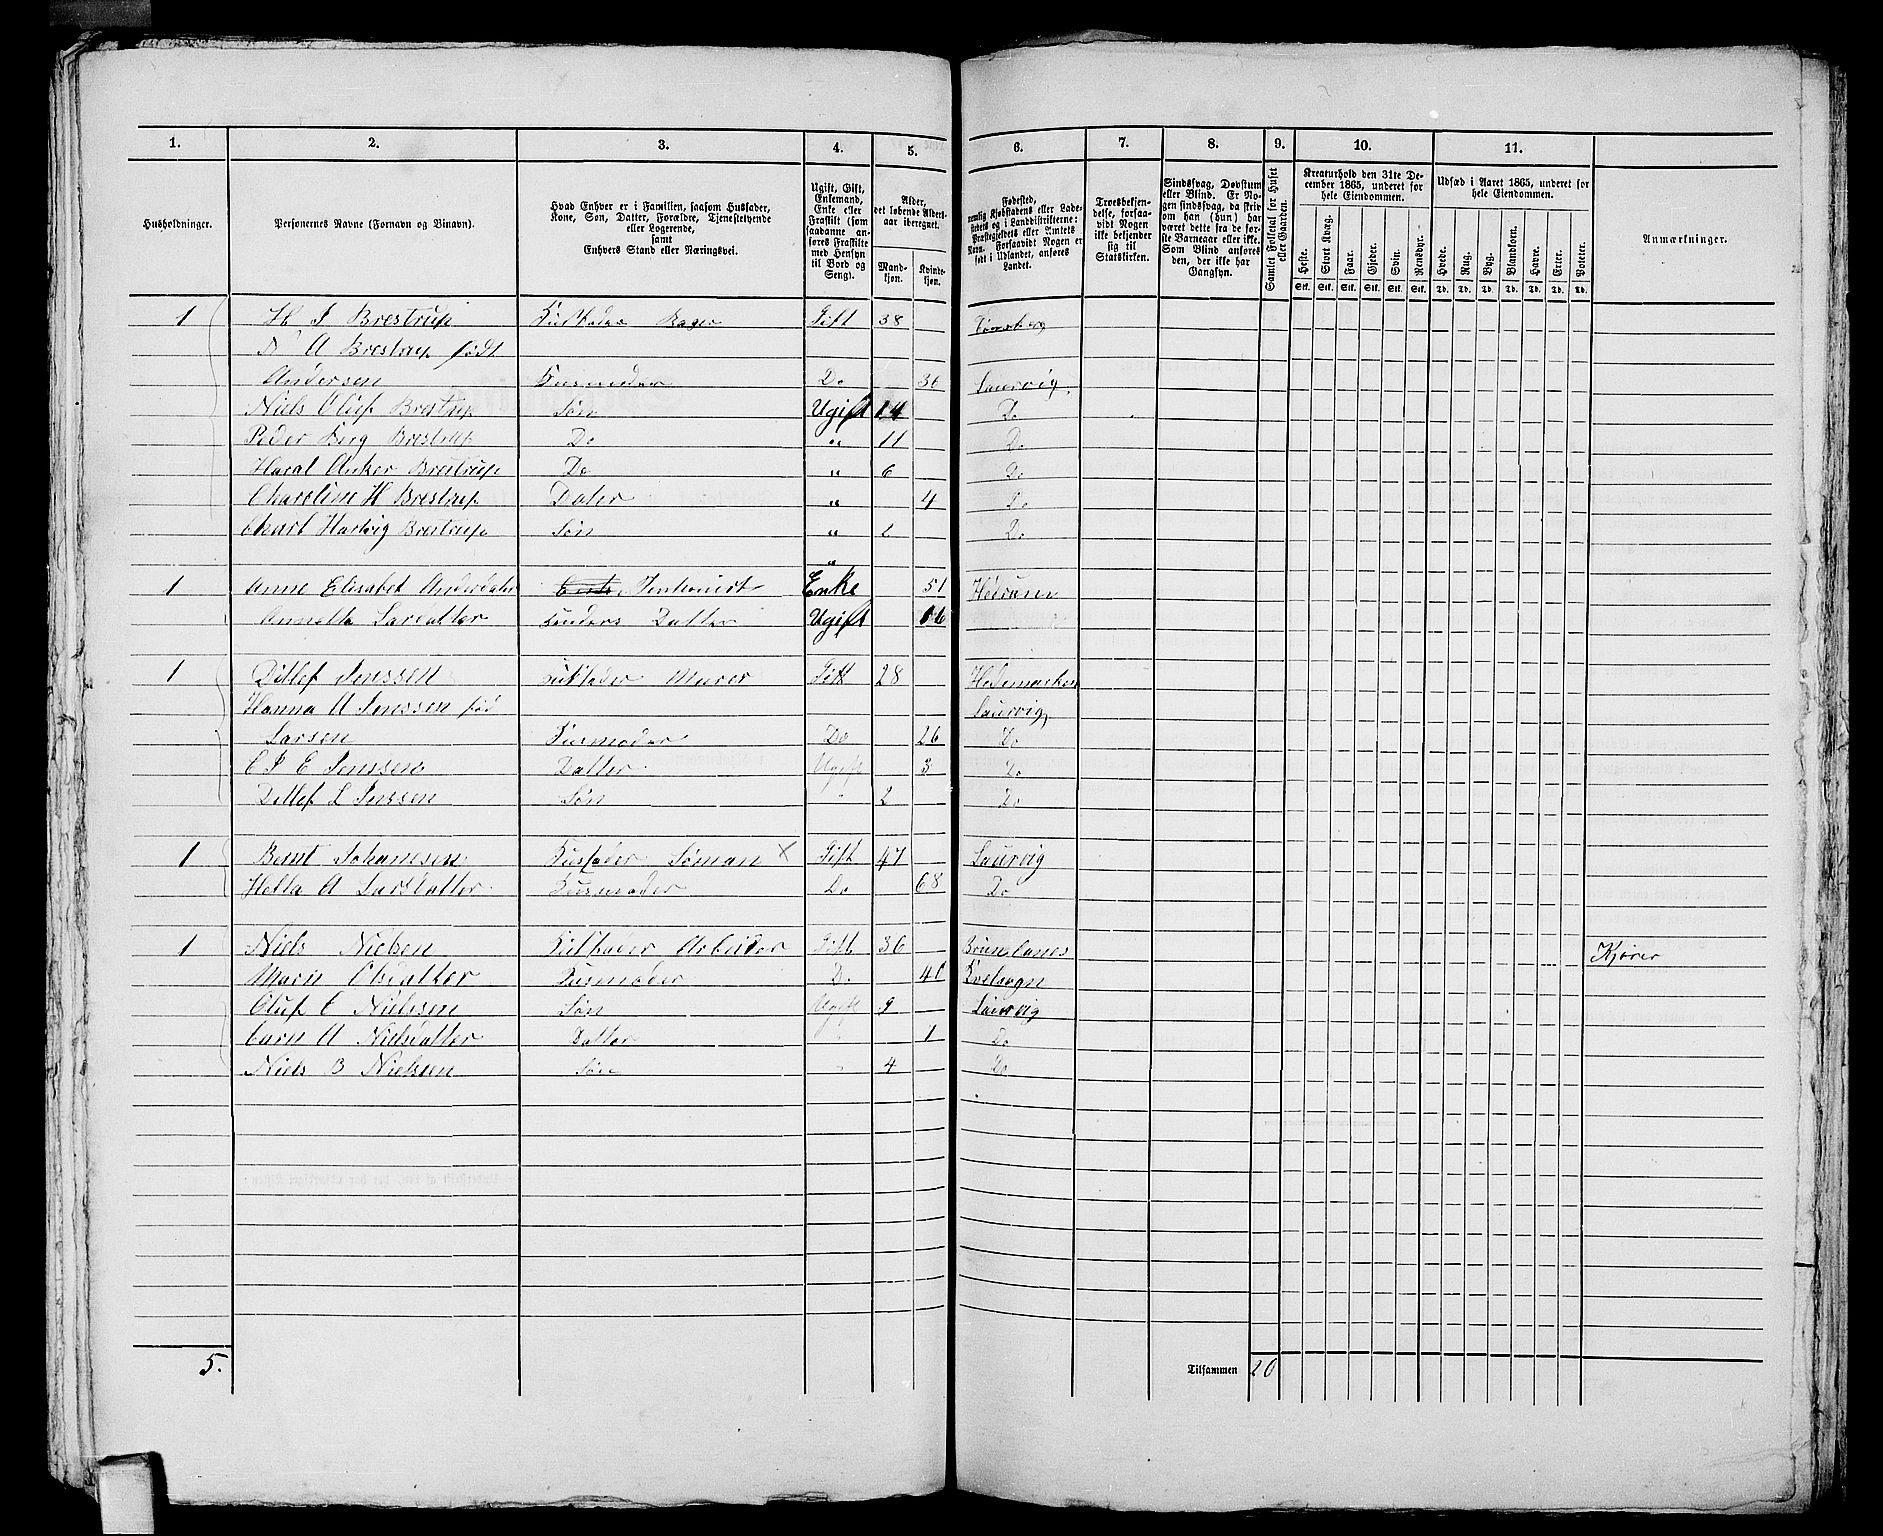 1. 2. 3. 4. 5. 6. 7. 8. 9. 10. 11.
Husholdninger.
Personernes Navne (Fornavn og Binavn).
Hvad Enhver er i Familien, saasom Husfader, Kone, Søn, Datter, Forældre, Tjenestetyende eller Logerende, samt Enhvers Stand eller Næringsvei.
Ugift, Gift, Enkemand, Enke eller Fraskilt (saadanne anføres Fraskilte med Hensyn til Bord og Seng).
Alder, det løbende Alders-aar iberegnet.
Mandkjøn. Kvindekjøn.
Fødested, nemlig Kjøbstadens eller Ladestedets og i Landdistrikterne: Præstegjeldets eller Amtets Navn. Forsaavidt Nogen er født i Udlandet, anføres Landet.
Troesbekjendelse, forsaavidt Nogen ikke bekjender sig til Statskirken.
Sindssvag, Døvstum eller Blind. Er Nogen sindssvag, da skrives om han (hun) har været dette fra de første Barneaar eller ikke. Som Blind anføres den, der ikke har Gangsyn.
Samlet Folketal for Huset eller Gaarden.
Kreaturhold den 31te December 1865, underet for hele Eiendommen.
Heste. Stort Kvæg. Faar. Gjeder. Svin. Rensdyr.
Stk. Stk. Stk. Stk. Stk. Stk.
Udsæd i Aaret 1865, underet for hele Eiendommen.
Hvede. Rug. Byg. Blandkorn. Havre. Erter. Poteter.
Td. Td. Td. Td. Td. Td. Td.
Anmærkninger.
1 H J Brestrup Husfader Bager Gift 38 Tønsberg
A Brestrup født
Andersen Husmoder Do 36 Laurvig
Niels Oluf Brestrup Søn Ugift 14 Do
Peder Berg Brestrup Do " 11 Do
Haral Anker Brestrup Do " 6 Do
Charoline H Brestrup Dater " 4 Do
Charl Hartvig Brestrup Søn " 2 Do
"
1 Anne Elisabet Andersdater Enke 51 Hedrum
Annette Larsdatter Datter Ugift 16
1 Ditlef Jenssen Husfader Murer Gift 28 Hedemarken
Hanna A Jenssen fød Laurvig
Larsen Husmoder Do 26 Do
C P E Jenssen Datter Ugift 3 Do
Ditlef L Jenssen Søn " 2 Do
1 Bernt Johannesen Husfader Søman X Gift 47 Laurvig
Hella A Larsdatter Husmoder Do 68 Do
1 Niels Nielsen Husfader Arbeider Gift 36 Brunlanes Kjører
Marn Olsdatter Husmoder Do 40 Kvelsogn
Oluf C Nielssen Søn Ugift 9 Laurvig
Carn A Nielsdatter Datter " 1 Do
Niels B Nielsen Søn " 4 Do
5. Tilsammen 20